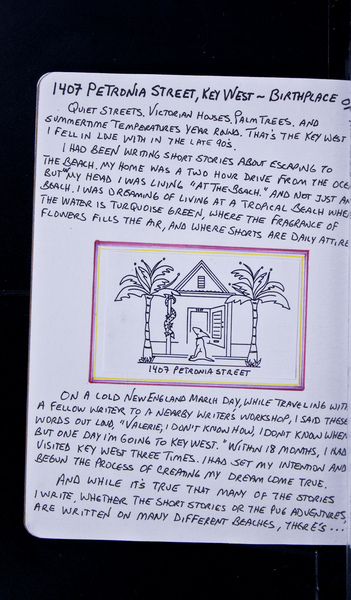 1407 PETRONIA STREET, KEY WEST ~ BIRTHPLACE OF
QUIET STREETS, VICTORIAN HOUSES, PALM TREES, AND
SUMMERTIME TEMPERATURES YEAR ROUND. THAT'S THE KEY WEST
I FELL IN LOVE WITH IN THE LATE 90'S.
I HAD BEEN WRITING SHORT STORIES ABOUT ESCAPING TO
THE BEACH. MY HOME WAS A TWO HOUR DRIVE FROM THE OCE
BUT IN MY HEAD I WAS LIVING "AT THE BEACH." AND NOT JUST AN
BEACH. I WAS DREAMING OF LIVING AT A TROPICAL BEACH WHE
THE WATER IS TURQUOISE GREEN, WHERE THE FRAGRANCE OF
FLOWERS FILLS THE AIR, AND WHERE SHORTS ARE DAILY ATTIRE.
1407 PETRONIA STREET
ON A COLD NEW ENGLAND MARCH DAY, WHILE TRAVELING WITH
A FELLOW WRITER TO A NEARBY WRITER'S WORKSHOP, I SAID THESE
WORDS OUT LOUD, "VALERIE, I DON'T KNOW HOW, I DON'T KNOW WHEN
BUT ONE DAY I'M GOING TO KEY WEST." WITHIN 18 MONTHS, I HAD
VISITED KEY WEST THREE TIMES. I HAD SET MY INTENTION AND
BEGUN THE PROCESS OF CREATING MY DREAM COME TRUE.
AND WHILE IT'S TRUE THAT MANY OF THE STORIES
I WRITE, WHETHER THE SHORT STORIES OR THE PUG ADVENTURES,
ARE WRITTEN ON MANY DIFFERENT BEACHES, THERE'S...